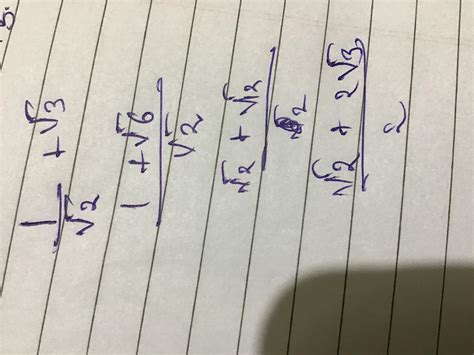 1/√2 + √3
(1 + √6)/√2
(√2 + √12)/2
(√2 + 2√3)/2